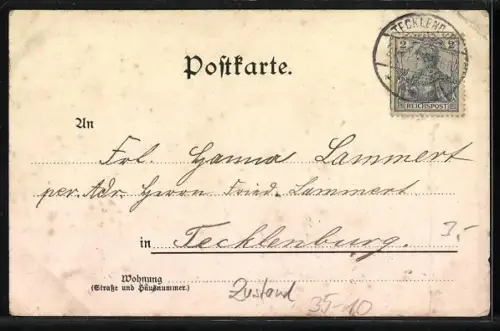 TECKLENB
2 2
REICHSPOST
Postkarte.
An
Frl. Hanna Lammert
per. Adr. Herrn Fried. Lammert
in Tecklenburg.
3,-
Wohnung
(Straße und Hausnummer)
Zustand 35-10